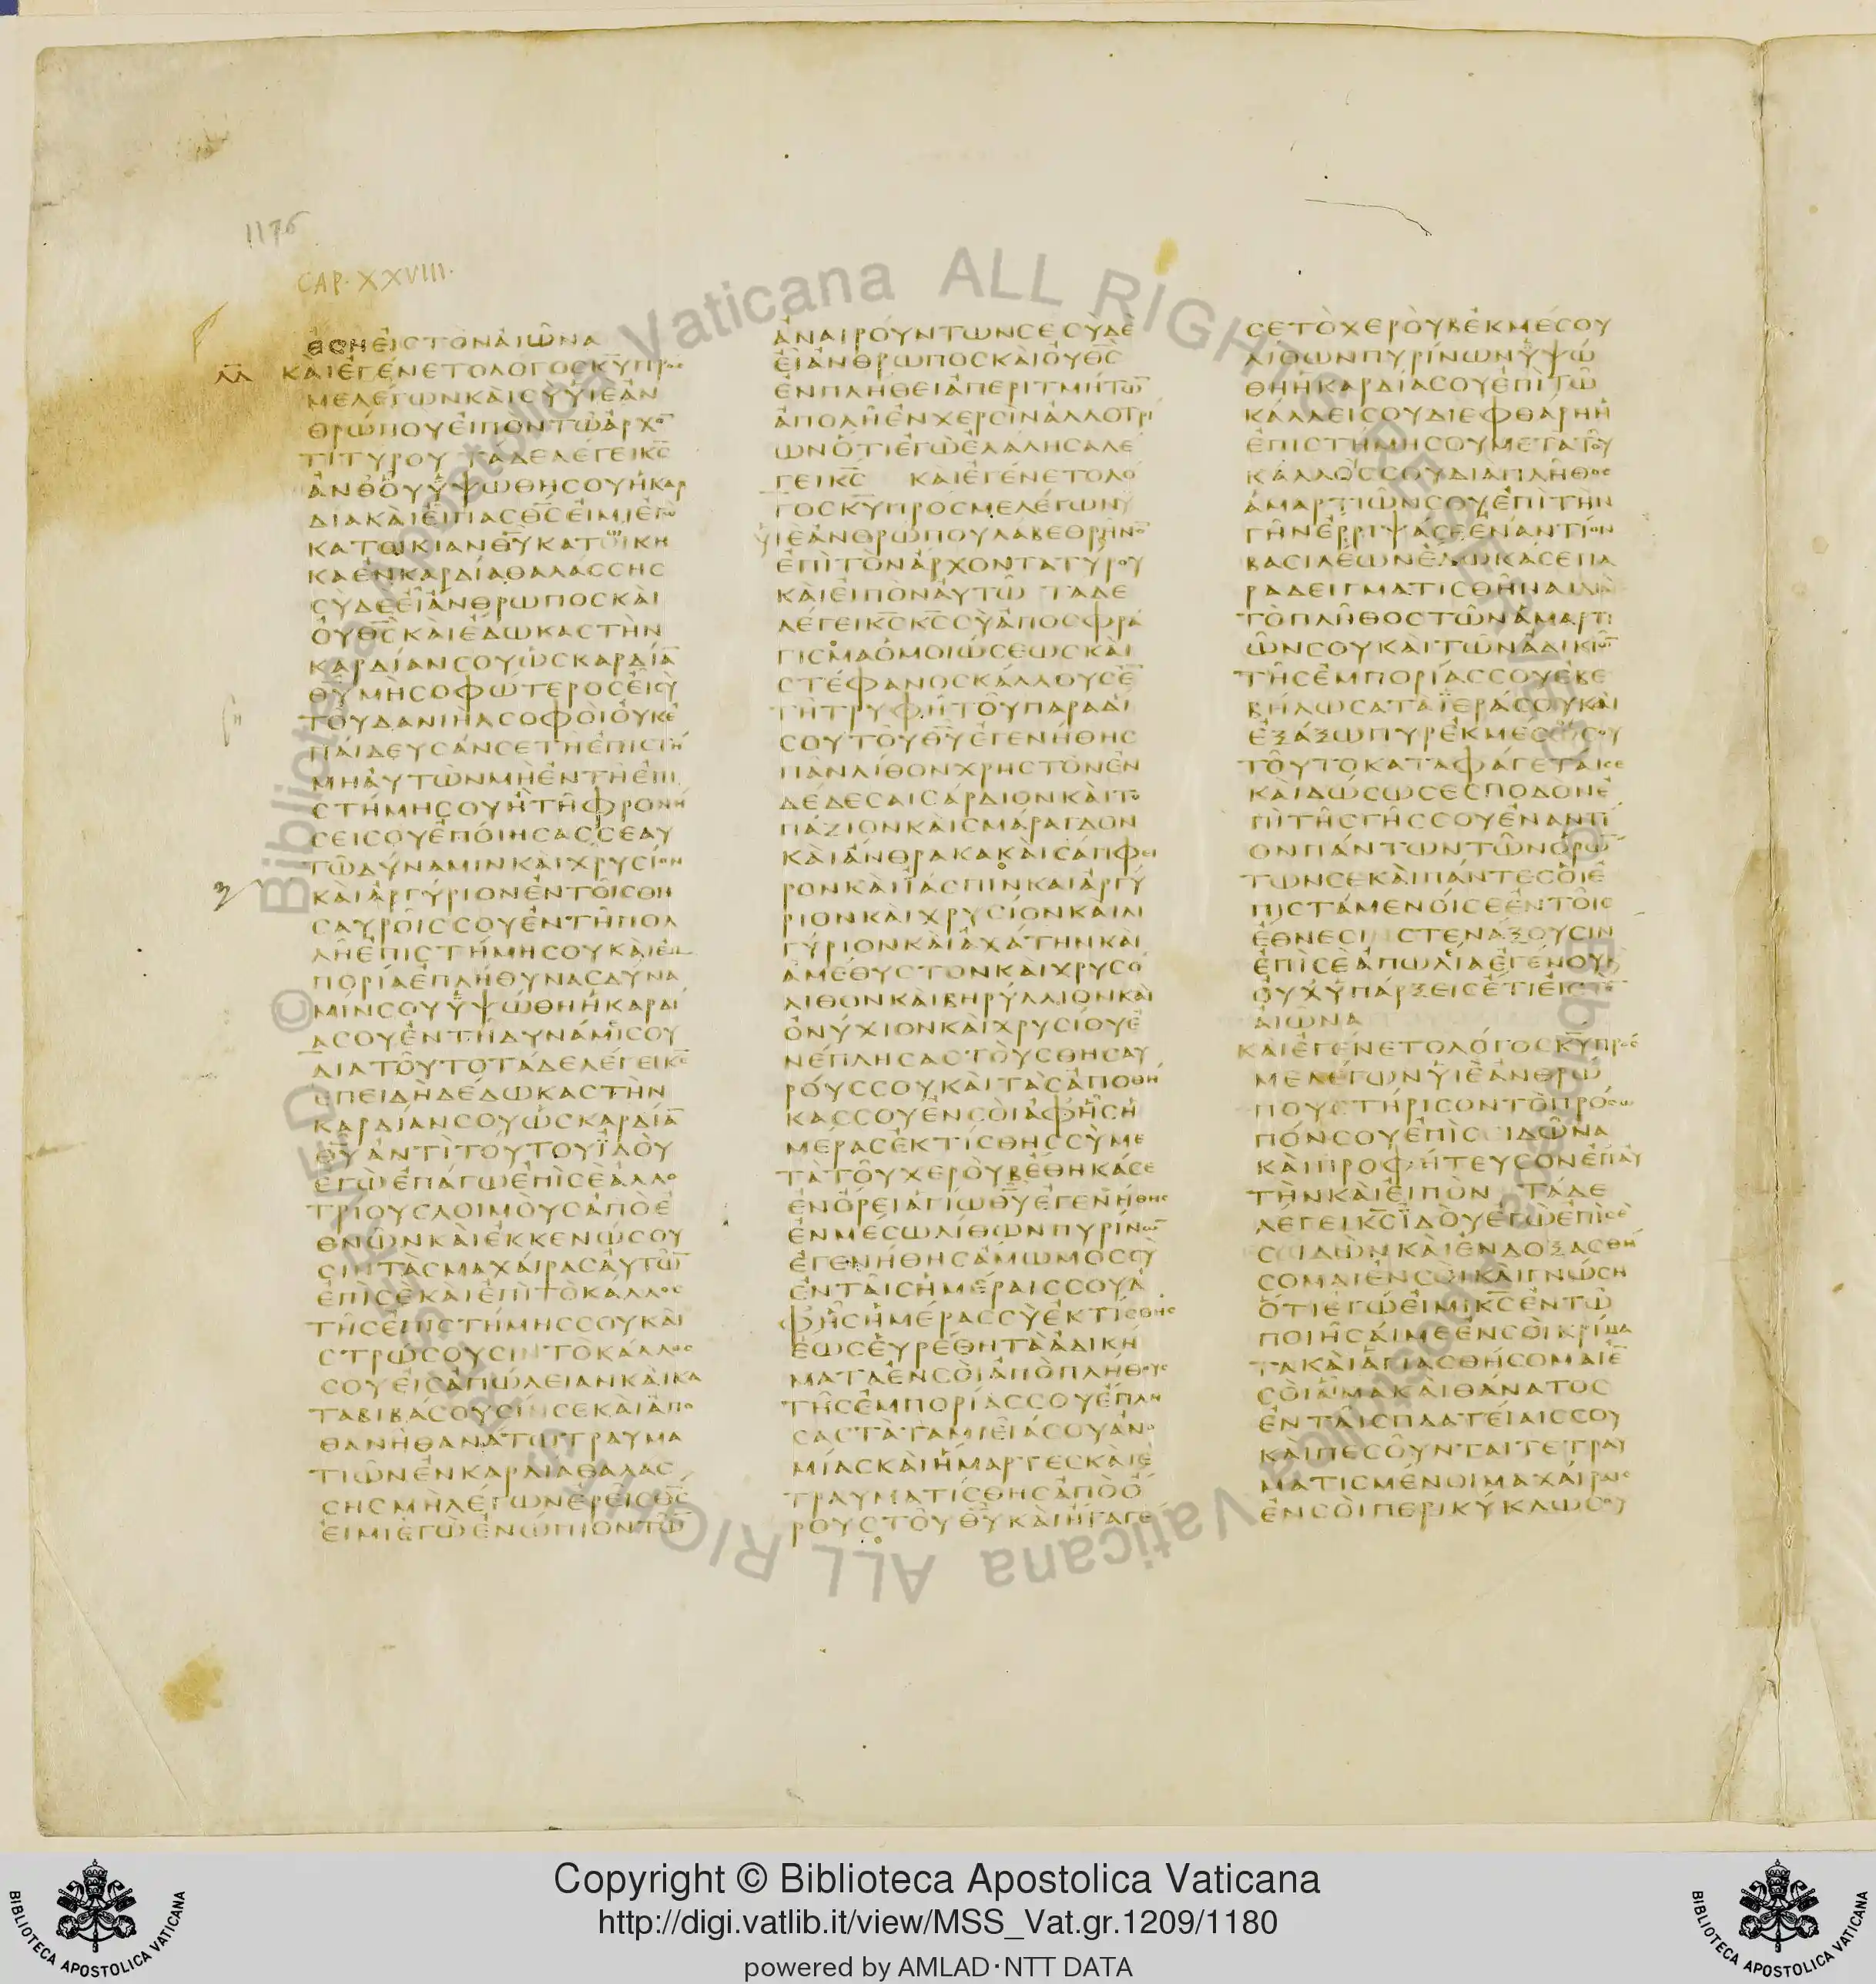 1176
CAP. XXVIII.
ἔσῃ εἰς τὸν αἰῶνα
ΚΑΙΕΓΕΝΕΤΟΛΟΓΟΣΚΥΠΡΟΣ
ΜΕΛΕΓΩΝΚΑΙΣΥΥΙΕΑΝ
ΘΡΩΠΟΥΕΙΠΟΝΤΩΑΡΧΟ̅
ΤΙΤΥΡΟΥ ΤΑΔΕΛΕΓΕΙΚΣ
ΑΝΘΟΥΥΨΩΘΗΣΟΥΗΚΑΡ
ΔΙΑΚΑΙΕΙΠΑΣΘΣΕΙΜΙΕΓΩ
ΚΑΤΟΙΚΙΑΝΘΥΚΑΤΩΙΚΗ
ΚΑΕΝΚΑΡΔΙΑΘΑΛΑΣΣΗΣ
ΣΥΔΕΕΙΑΝΘΡΩΠΟΣΚΑΙ
ΟΥΘΣΚΑΙΕΔΩΚΑΣΤΗΝ
ΚΑΡΔΙΑΝΣΟΥΩΣΚΑΡΔΙΑ̅
ΘΥΜΗΣΟΦΩΤΕΡΟΣΕΙΣΥ
ΤΟΥΔΑΝΙΗΛΣΟΦΟΙΟΥΚΕ
ΠΑΙΔΕΥΣΑΝΣΕΤΗΕΠΙΣΤΗ
ΜΗΑΥΤΩΝΜΗΕΝΤΗΕΠΙ
ΣΤΗΜΗΣΟΥΗΤΗΦΡΟΝΗ
ΣΕΙΣΟΥΕΠΟΙΗΣΑΣΣΕΑΥ
ΤΩΔΥΝΑΜΙΝΚΑΙΧΡΥΣΙΟΝ
ΚΑΙΑΡΓΥΡΙΟΝΕΝΤΟΙΣΘΗ
ΣΑΥΡΟΙΣΣΟΥΕΝΤΗΠΟΛ
ΛΗΕΠΙΣΤΗΜΗΣΟΥΚΑΙΕΜ
ΠΟΡΙΑΕΠΛΗΘΥΝΑΣΔΥΝΑ
ΜΙΝΣΟΥΥΨΩΘΗΗΚΑΡΔΙ
ΑΣΟΥΕΝΤΗΔΥΝΑΜΙΣΟΥ
ΔΙΑΤΟΥΤΟΤΑΔΕΛΕΓΕΙΚΣ
ΕΠΕΙΔΗΔΕΔΩΚΑΣΤΗΝ
ΚΑΡΔΙΑΝΣΟΥΩΣΚΑΡΔΙΑ̅
ΘΥΑΝΤΙΤΟΥΤΟΥΙΔΟΥ
ΕΓΩΕΠΑΓΩΕΠΙΣΕΑΛΛΟ
ΤΡΙΟΥΣΛΟΙΜΟΥΣΑΠΟΕ
ΘΝΩΝΚΑΙΕΚΚΕΝΩΣΟΥ
ΣΙΝΤΑΣΜΑΧΑΙΡΑΣΑΥΤΩ̅
ΕΠΙΣΕΚΑΙΕΠΙΤΟΚΑΛΛΟΣ
ΤΗΣΕΠΙΣΤΗΜΗΣΣΟΥΚΑΙ
ΣΤΡΩΣΟΥΣΙΝΤΟΚΑΛΛΟΣ
ΣΟΥΕΙΣΑΠΩΛΕΙΑΝΚΑΙΚΑ
ΤΑΒΙΒΑΣΟΥΣΙΝΣΕΚΑΙΑΠΟ
ΘΑΝΗΘΑΝΑΤΩΤΡΑΥΜΑ
ΤΙΩΝΕΝΚΑΡΔΙΑΘΑΛΑΣ
ΣΗΣΜΗΛΕΓΩΝΕΡΕΙΣΘΣ
ΕΙΜΙΕΓΩΕΝΩΠΙΟΝΤΩ̅
ΑΝΑΙΡΟΥΝΤΩΝΣΕΣΥΔΕ
ΕΙΑΝΘΡΩΠΟΣΚΑΙΟΥΘΣ
ΕΝΠΛΗΘΕΙΑΠΕΡΙΤΜΗΤΩ̅
ΑΠΟΛΗΕΝΧΕΡΣΙΝΑΛΛΟΤΡΙ
ΩΝΟΤΙΕΓΩΕΛΑΛΗΣΑΛΕ
ΓΕΙΚΣ ΚΑΙΕΓΕΝΕΤΟΛΟ
ΓΟΣΚΥΠΡΟΣΜΕΛΕΓΩΝ
ΥΙΕΑΝΘΡΩΠΟΥΛΑΒΕΘΡΗΝΟ̅
ΕΠΙΤΟΝΑΡΧΟΝΤΑΤΥΡΟΥ
ΚΑΙΕΙΠΟΝΑΥΤΩ ΤΑΔΕ
ΛΕΓΕΙΚΣΚΣΣΥΑΠΟΣΦΡΑ
ΓΙΣΜΑΟΜΟΙΩΣΕΩΣΚΑΙ
ΣΤΕΦΑΝΟΣΚΑΛΛΟΥΣΕ̅
ΤΗΤΡΥΦΗΤΟΥΠΑΡΑΔΙ
ΣΟΥΤΟΥΘΥΕΓΕΝΗΘΗΣ
ΠΑΝΛΙΘΟΝΧΡΗΣΤΟΝΕΝ
ΔΕΔΕΣΑΙΣΑΡΔΙΟΝΚΑΙΤΟ
ΠΑΖΙΟΝΚΑΙΣΜΑΡΑΓΔΟΝ
ΚΑΙΑΝΘΡΑΚΑΚΑΙΣΑΠΦΕΙ
ΡΟΝΚΑΙΙΑΣΠΙΝΚΑΙΑΡΓΥ
ΡΙΟΝΚΑΙΧΡΥΣΙΟΝΚΑΙΛΙ
ΓΥΡΙΟΝΚΑΙΑΧΑΤΗΝΚΑΙ
ΑΜΕΘΥΣΤΟΝΚΑΙΧΡΥΣΟ
ΛΙΘΟΝΚΑΙΒΗΡΥΛΛΙΟΝΚΑΙ
ΟΝΥΧΙΟΝΚΑΙΧΡΥΣΙΟΥΕ
ΝΕΠΛΗΣΑΣΤΟΥΣΘΗΣΑΥ
ΡΟΥΣΣΟΥΚΑΙΤΑΣΑΠΟΘΗ
ΚΑΣΣΟΥΕΝΣΟΙΑΦΗΣΗ
ΜΕΡΑΣΕΚΤΙΣΘΗΣΣΥΜΕ
ΤΑΤΟΥΧΕΡΟΥΒΕΘΗΚΑΣΕ
ΕΝΟΡΕΙΑΓΙΩΘΥΕΓΕΝΗΘΗΣ
ΕΝΜΕΣΩΛΙΘΩΝΠΥΡΙΝΩ̅
ΕΓΕΝΗΘΗΣΑΜΩΜΟΣΣΥ
ΕΝΤΑΙΣΗΜΕΡΑΙΣΣΟΥΑ
ΦΗΣΗΜΕΡΑΣΣΥΕΚΤΙΣΘΗΣ
ΕΩΣΕΥΡΕΘΗΤΑΑΔΙΚΗ
ΜΑΤΑΕΝΣΟΙΑΠΟΠΛΗΘΟΥΣ
ΤΗΣΕΜΠΟΡΙΑΣΣΟΥΕΠΛΗ
ΣΑΣΤΑΤΑΜΙΕΙΑΣΟΥΑΝΟ
ΜΙΑΣΚΑΙΗΜΑΡΤΕΣΚΑΙΕ
ΤΡΑΥΜΑΤΙΣΘΗΣΑΠΟΟ
ΡΟΥΣΤΟΥΘΥΚΑΙΗΓΑΓΕ
ΣΕΤΟΧΕΡΟΥΒΕΚΜΕΣΟΥ
ΛΙΘΩΝΠΥΡΙΝΩΝΥΨΩ
ΘΗΗΚΑΡΔΙΑΣΟΥΕΠΙΤΩ
ΚΑΛΛΕΙΣΟΥΔΙΕΦΘΑΡΗΗ
ΕΠΙΣΤΗΜΗΣΟΥΜΕΤΑΤΟΥ
ΚΑΛΛΟΣΣΟΥΔΙΑΠΛΗΘΟΣ
ΑΜΑΡΤΙΩΝΣΟΥΕΠΙΤΗΝ
ΓΗΝΕΡΡΙΨΑΣΕΕΝΑΝΤΙΟΝ
ΒΑΣΙΛΕΩΝΕΔΩΚΑΣΕΠΑ
ΡΑΔΕΙΓΜΑΤΙΣΘΗΝΑΙΔΙΑ
ΤΟΠΛΗΘΟΣΤΩΝΑΜΑΡΤΙ
ΩΝΣΟΥΚΑΙΤΩΝΑΔΙΚΙΩ̅
ΤΗΣΕΜΠΟΡΙΑΣΣΟΥΕΒΕ
ΒΗΛΩΣΑΤΑΙΕΡΑΣΟΥΚΑΙ
ΕΞΑΞΩΠΥΡΕΚΜΕΣΟΥΣΟΥ
ΤΟΥΤΟΚΑΤΑΦΑΓΕΤΑΙΣΕ
ΚΑΙΔΩΣΩΣΕΣΠΟΔΟΝΕ
ΠΙΤΗΣΓΗΣΣΟΥΕΝΑΝΤΙ
ΟΝΠΑΝΤΩΝΤΩΝΟΡΩ̅
ΤΩΝΣΕΚΑΙΠΑΝΤΕΣΟΙΕ
ΠΙΣΤΑΜΕΝΟΙΣΕΕΝΤΟΙΣ
ΕΘΝΕΣΙΝΣΤΕΝΑΞΟΥΣΙΝ
ΕΠΙΣΕΑΠΩΛΙΑΕΓΕΝΟΥ
ΟΥΧΥΠΑΡΞΕΙΣΕΤΙΕΙΣΤΟ̅
ΑΙΩΝΑ
ΚΑΙΕΓΕΝΕΤΟΛΟΓΟΣΚΥΠΡΟΣ
ΜΕΛΕΓΩΝΥΙΕΑΝΘΡΩ
ΠΟΥΣΤΗΡΙΣΟΝΤΟΠΡΟΣΩ
ΠΟΝΣΟΥΕΠΙΣΙΔΩΝΑ
ΚΑΙΠΡΟΦΗΤΕΥΣΟΝΕΠΑΥ
ΤΗΝΚΑΙΕΙΠΟΝ ΤΑΔΕ
ΛΕΓΕΙΚΣΙΔΟΥΕΓΩΕΠΙΣΕ
ΣΙΔΩΝΚΑΙΕΝΔΟΞΑΣΘΗ
ΣΟΜΑΙΕΝΣΟΙΚΑΙΓΝΩΣΗ
ΟΤΙΕΓΩΕΙΜΙΚΣΕΝΤΩ
ΠΟΙΗΣΑΙΜΕΕΝΣΟΙΚΡΙΜΑ
ΤΑΚΑΙΑΓΙΑΣΘΗΣΟΜΑΙΕ̅
ΣΟΙΑΙΜΑΚΑΙΘΑΝΑΤΟΣ
ΕΝΤΑΙΣΠΛΑΤΕΙΑΙΣΣΟΥ
ΚΑΙΠΕΣΟΥΝΤΑΙΤΕΤΡΑΥ
ΜΑΤΙΣΜΕΝΟΙΜΑΧΑΙΡΑΙΣ
ΕΝΣΟΙΠΕΡΙΚΥΚΛΩΣΟΥ
© Biblioteca Apostolica Vaticana ALL RIGHTS RESERVED
© Biblioteca Apostolica Vaticana ALL RIGHTS RESERVED
Copyright © Biblioteca Apostolica Vaticana
http://digi.vatlib.it/view/MSS_Vat.gr.1209/1180
powered by AMLAD·NTT DATA
BIBLIOTECA APOSTOLICA VATICANA
BIBLIOTECA APOSTOLICA VATICANA